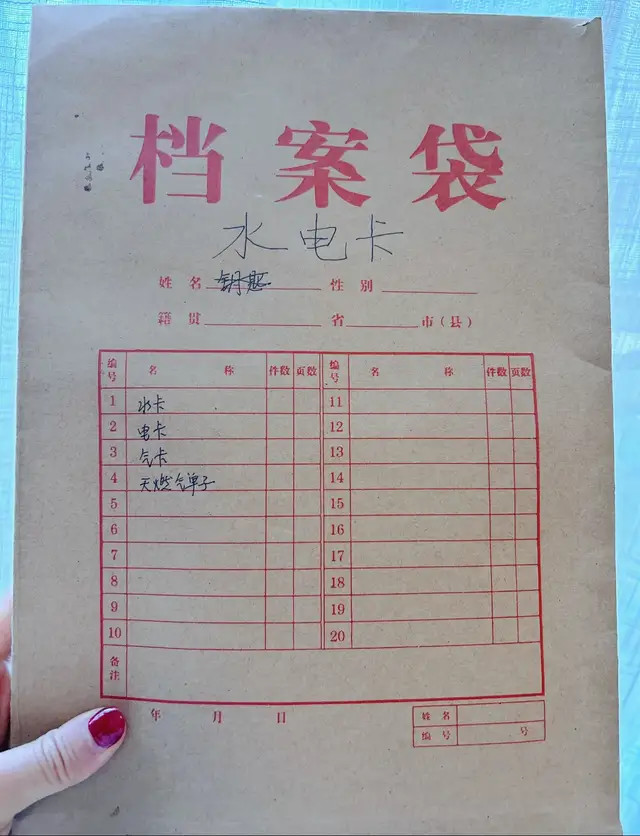 档案袋
水电卡
姓名 钥匙 性别
籍贯 省 市(县)
编号 名称 件数 页数 编号 名称 件数 页数
1 水卡 11
2 电卡 12
3 气卡 13
4 天燃气单子 14
5 15
6 16
7 17
8 18
9 19
10 20
备注
年 月 日
姓名
编号 号